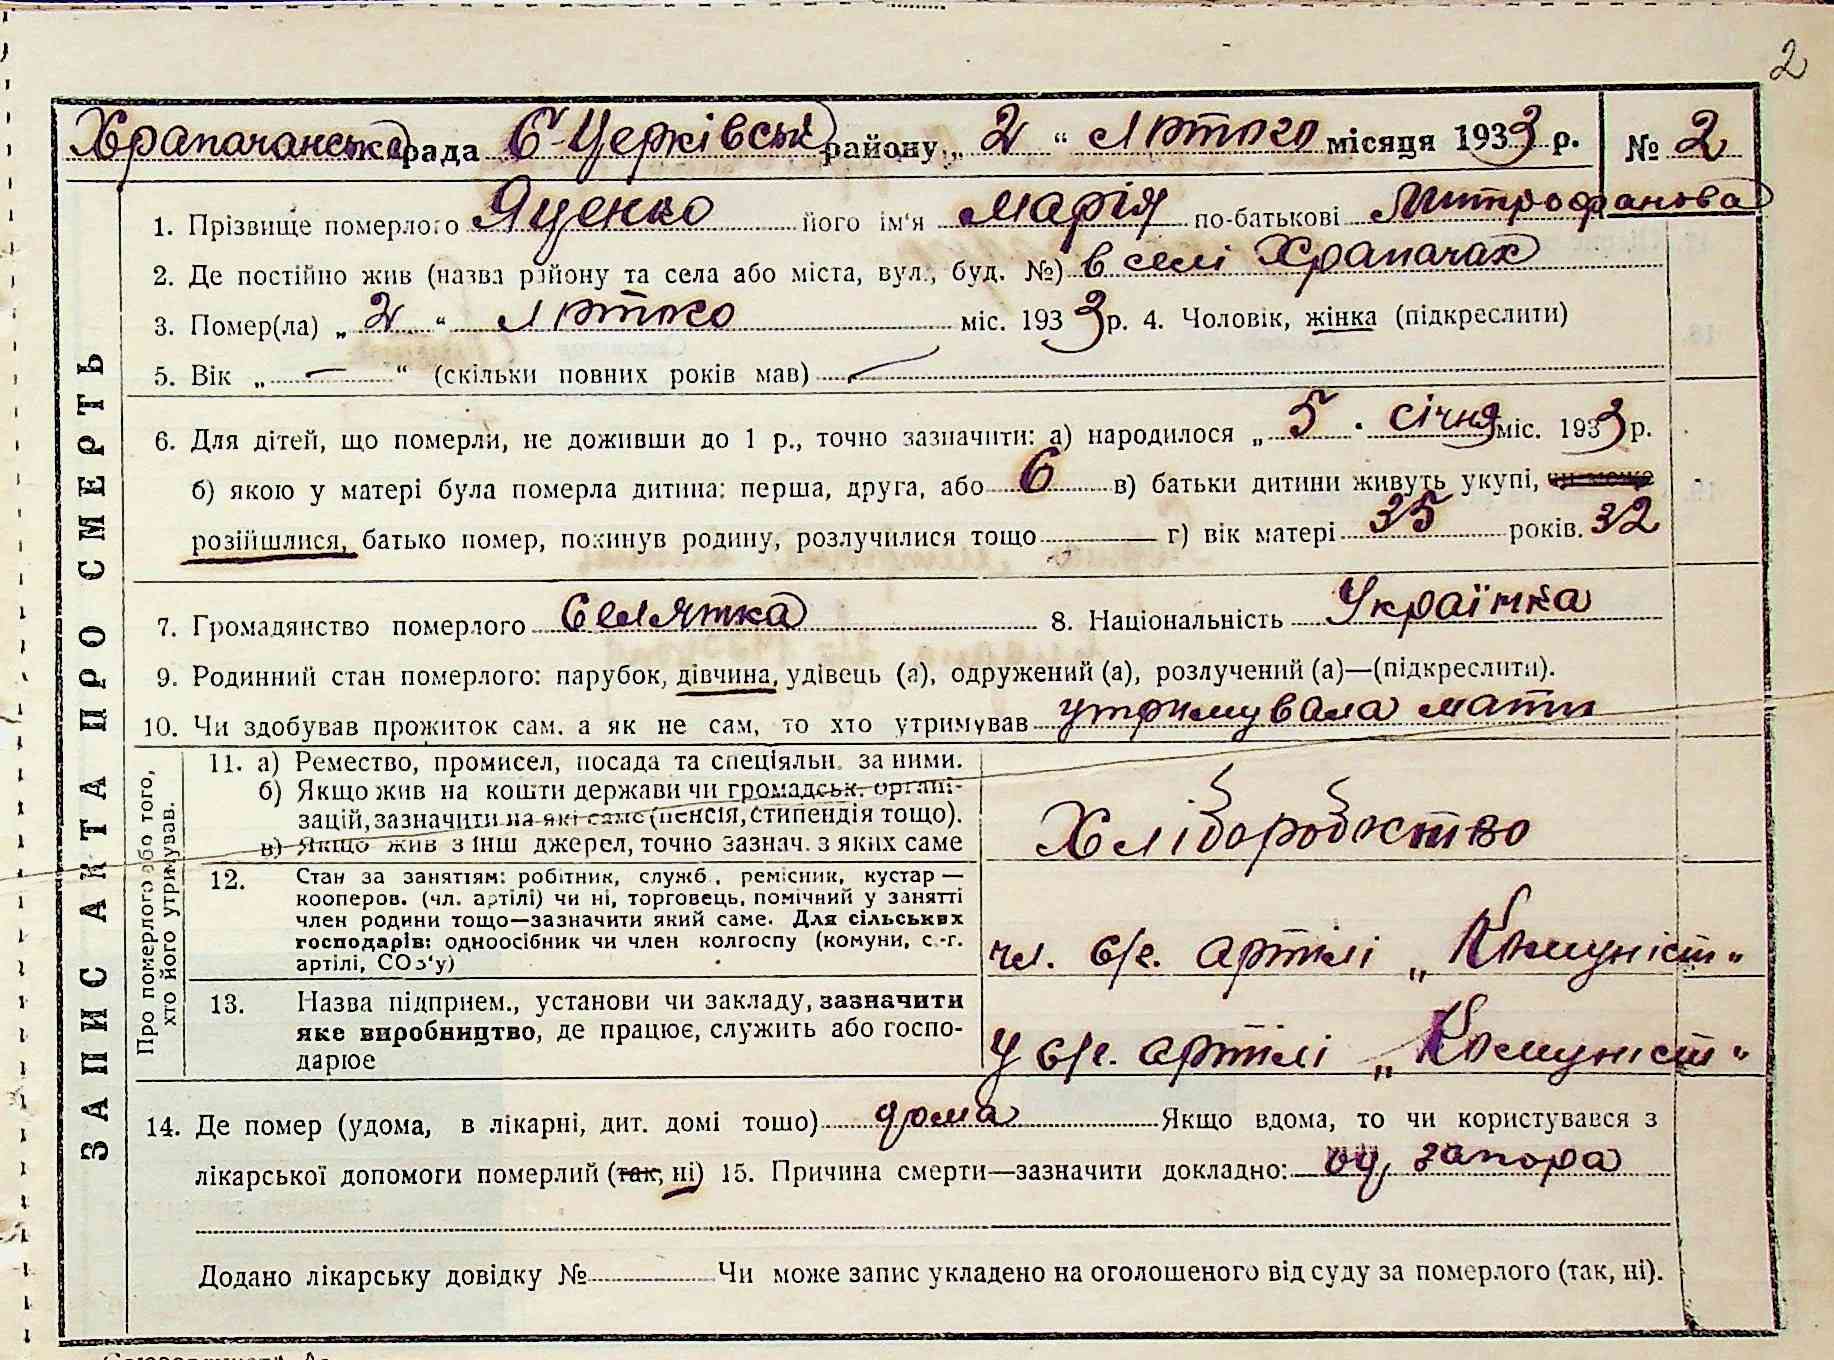 2
Храпачанська рада Б-Церківськ району „ 2 “ лютого місяця 1933 р. № 2
ЗАПИС АКТА ПРО СМЕРТЬ
1. Прізвище померлого Яценко його ім‘я Марія по-батькові Митрофанова
2. Де постійно жив (назва району та села або міста, вул., буд. №) в селі Храпачах
3. Помер(ла) „ 2 “ лютого міс. 1933 р. 4. Чоловік, жінка (підкреслити)
5. Вік „ — “ (скільки повних років мав) —
6. Для дітей, що померли, не доживши до 1 р., точно зазначити: а) народилося „ 5 “ січня міс. 1933 р.
б) якою у матері була померла дитина: перша, друга, або 6 в) батьки дитини живуть укупі,
розійшлися, батько помер, покинув родину, розлучилися тощо г) вік матері 35 років. 32
7. Громадянство померлого Селянка 8. Національність Українка
9. Родинний стан померлого: парубок, дівчина, удівець (а), одружений (а), розлучений (а)—(підкреслити).
10. Чи здобував прожиток сам, а як не сам, то хто утримував утримувала мати
Про померлого або того,
хто його утримував.
11. а) Ремество, промисел, посада та спеціяльн. за ними.
б) Якщо жив на кошти держави чи громадськ. органі-
зацій, зазначити на які саме (пенсія, стипендія тощо).
в) Якщо жив з інш джерел, точно зазнач. з яких саме
Хліборобство
12. Стан за заняттям: робітник, служб., ремісник, кустар —
кооперов. (чл. артілі) чи ні, торговець, помічний у занятті
член родини тощо—зазначити який саме. Для сільських
господарів: одноосібник чи член колгоспу (комуни, с.-г.
артілі, СОз‘у)
чл. с/г. артілі „Комуніст“
13. Назва підприєм., установи чи закладу, зазначити
яке виробництво, де працює, служить або госпо-
дарює
У с/г. артілі „Комуніст“
14. Де помер (удома, в лікарні, дит. домі тощо) дома Якщо вдома, то чи користувався з
лікарської допомоги померлий (так, ні) 15. Причина смерти—зазначити докладно: од запора
Додано лікарську довідку № Чи може запис укладено на оголошеного від суду за померлого (так, ні).